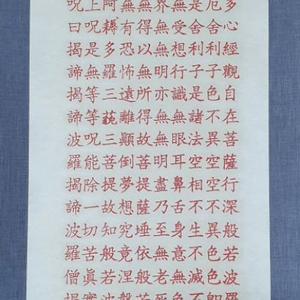 多心經觀自在菩薩行深般若波
厄舍利子色不異空空不異色色
是舍利子是諸法空相不生不滅不
無受想行識無眼耳鼻舌身意無色
界無無明亦無無明盡乃至無老死
無得以無所得故菩提薩埵依般若
無有恐怖遠離顛倒夢想究竟涅槃
阿耨多羅三藐三菩提故知般若波
上呪是無等等呪能除一切苦真實
呪曰揭諦揭諦波羅揭諦波羅僧揭